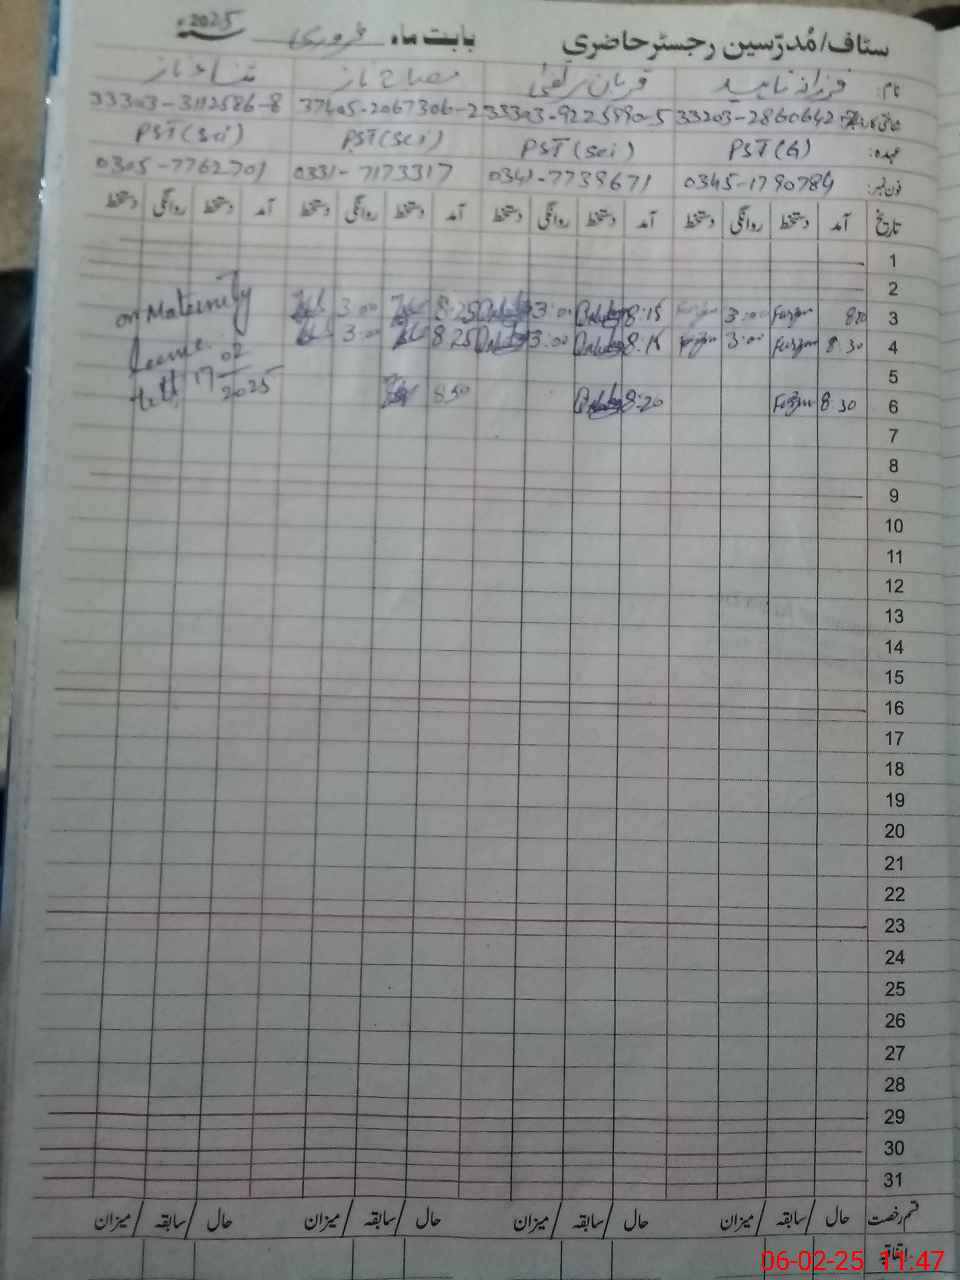 سٹاف/مُدرّسین رجسٹرحاضری بابت ماہ فروری 2025ء
نام: فرزانہ ناہید قربان مصباح ناز ناز
33203-2860642 33303-9225590-5 37405-2067306-2 33303-3112586-8
عہدہ: PST(G) PST(Sci) PST(Sci) PST(Sci)
فون نمبر: 0345-1790784 0341-7739671 0331-7173317 0305-7762701
تاریخ آمد دستخط روانگی دستخط آمد دستخط روانگی دستخط آمد دستخط روانگی دستخط آمد دستخط روانگی دستخط
1
2
3 3:00 8:15 3:00 8:25 3:00 on Maternity
4 8:30 3:00 8:15 3:00 8:25 3:00
5 17 02 2025
6 8:30 8:20 8:50
7
8
9
10
11
12
13
14
15
16
17
18
19
20
21
22
23
24
25
26
27
28
29
30
31
قسم رخصت حال / سابقہ / میزان حال / سابقہ / میزان حال / سابقہ / میزان حال / سابقہ / میزان
اتفاقیہ
06-02-25 11:47